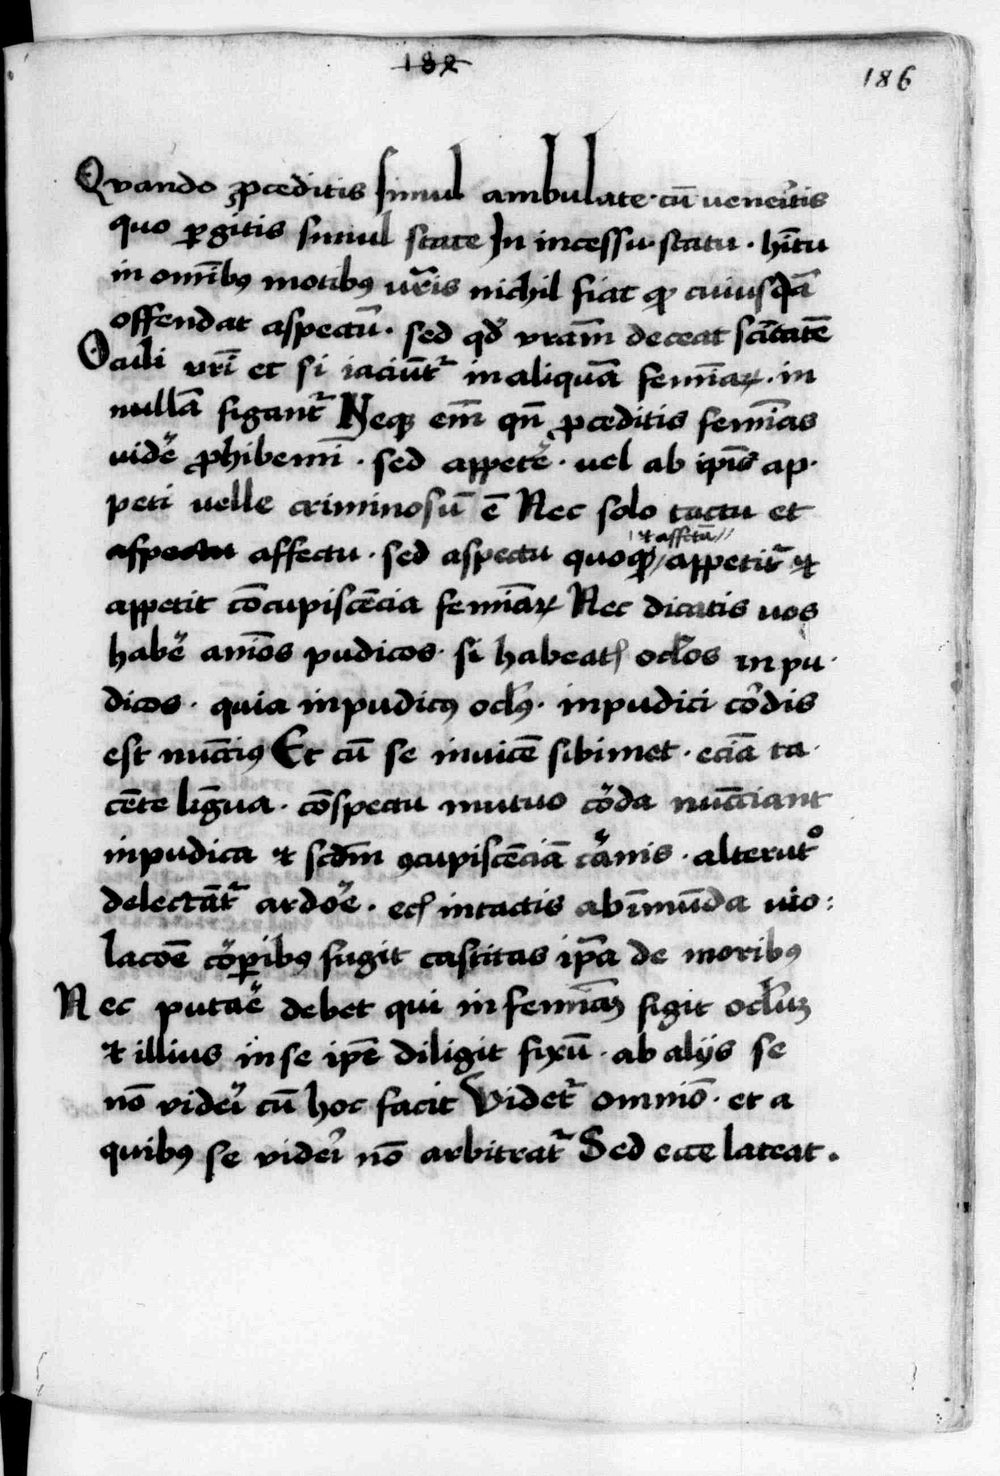 182
186
Quando ꝓceditis simul ambulate · cū uener̄itis
quo ꝑgitis simul state In incessu · statu · hītu
in omībꝰ motibꝰ vr̄is nichil fiat qḋ cuiusqā
offendat aspectū · sed qḋ vram̄ deceat sc̄itatē
Oculi vrī et si iaciūtr̄ in aliquā femīaꝝ · in
nullā figantr̄ Neqꝫ em̄ qn̄ ꝓceditis femīas
videꝛ̄ ꝓhibemī · sed appetē · uel ab ip̄is ap·
peti uelle criminosū ē Nec solo tactu et
aspectu affectu · sed aspectu quoqꝫ / appetitr̄ ⁊
⁊ affetū //
appetit cōcupiscēcia femīaꝝ Nec dicatis uos
habē anīos pudicos · si habeatꝭ ocl̄os in pu·
dicos · quia inpudicꝰ ocl̄ꝰ · inpudici cōdis
est nūcciꝰ Et cū se inuicē sibimet · eciā ta·
cēte līgua · cōspectu mutuo cōda nūcciant
inpudica ⁊ scdm̄ ꝯcupiscēciā cānis · alterutͦ
delectātr̄ ardoē · ecꝭ intactis ab īmūda uio:
lacoē cōꝑibꝰ fugit castitas ip̄a de moribꝰ
Nec putaē debet qui in femīaꝫ figit ocl̄uꝫ
⁊ illius in se ip̄e diligit fixū · ab alijs se
nō videri cū hoc facit Videtr̄ omnīo · et a
quibꝰ se videri nō arbitratr̄ Sed ecce lateat .